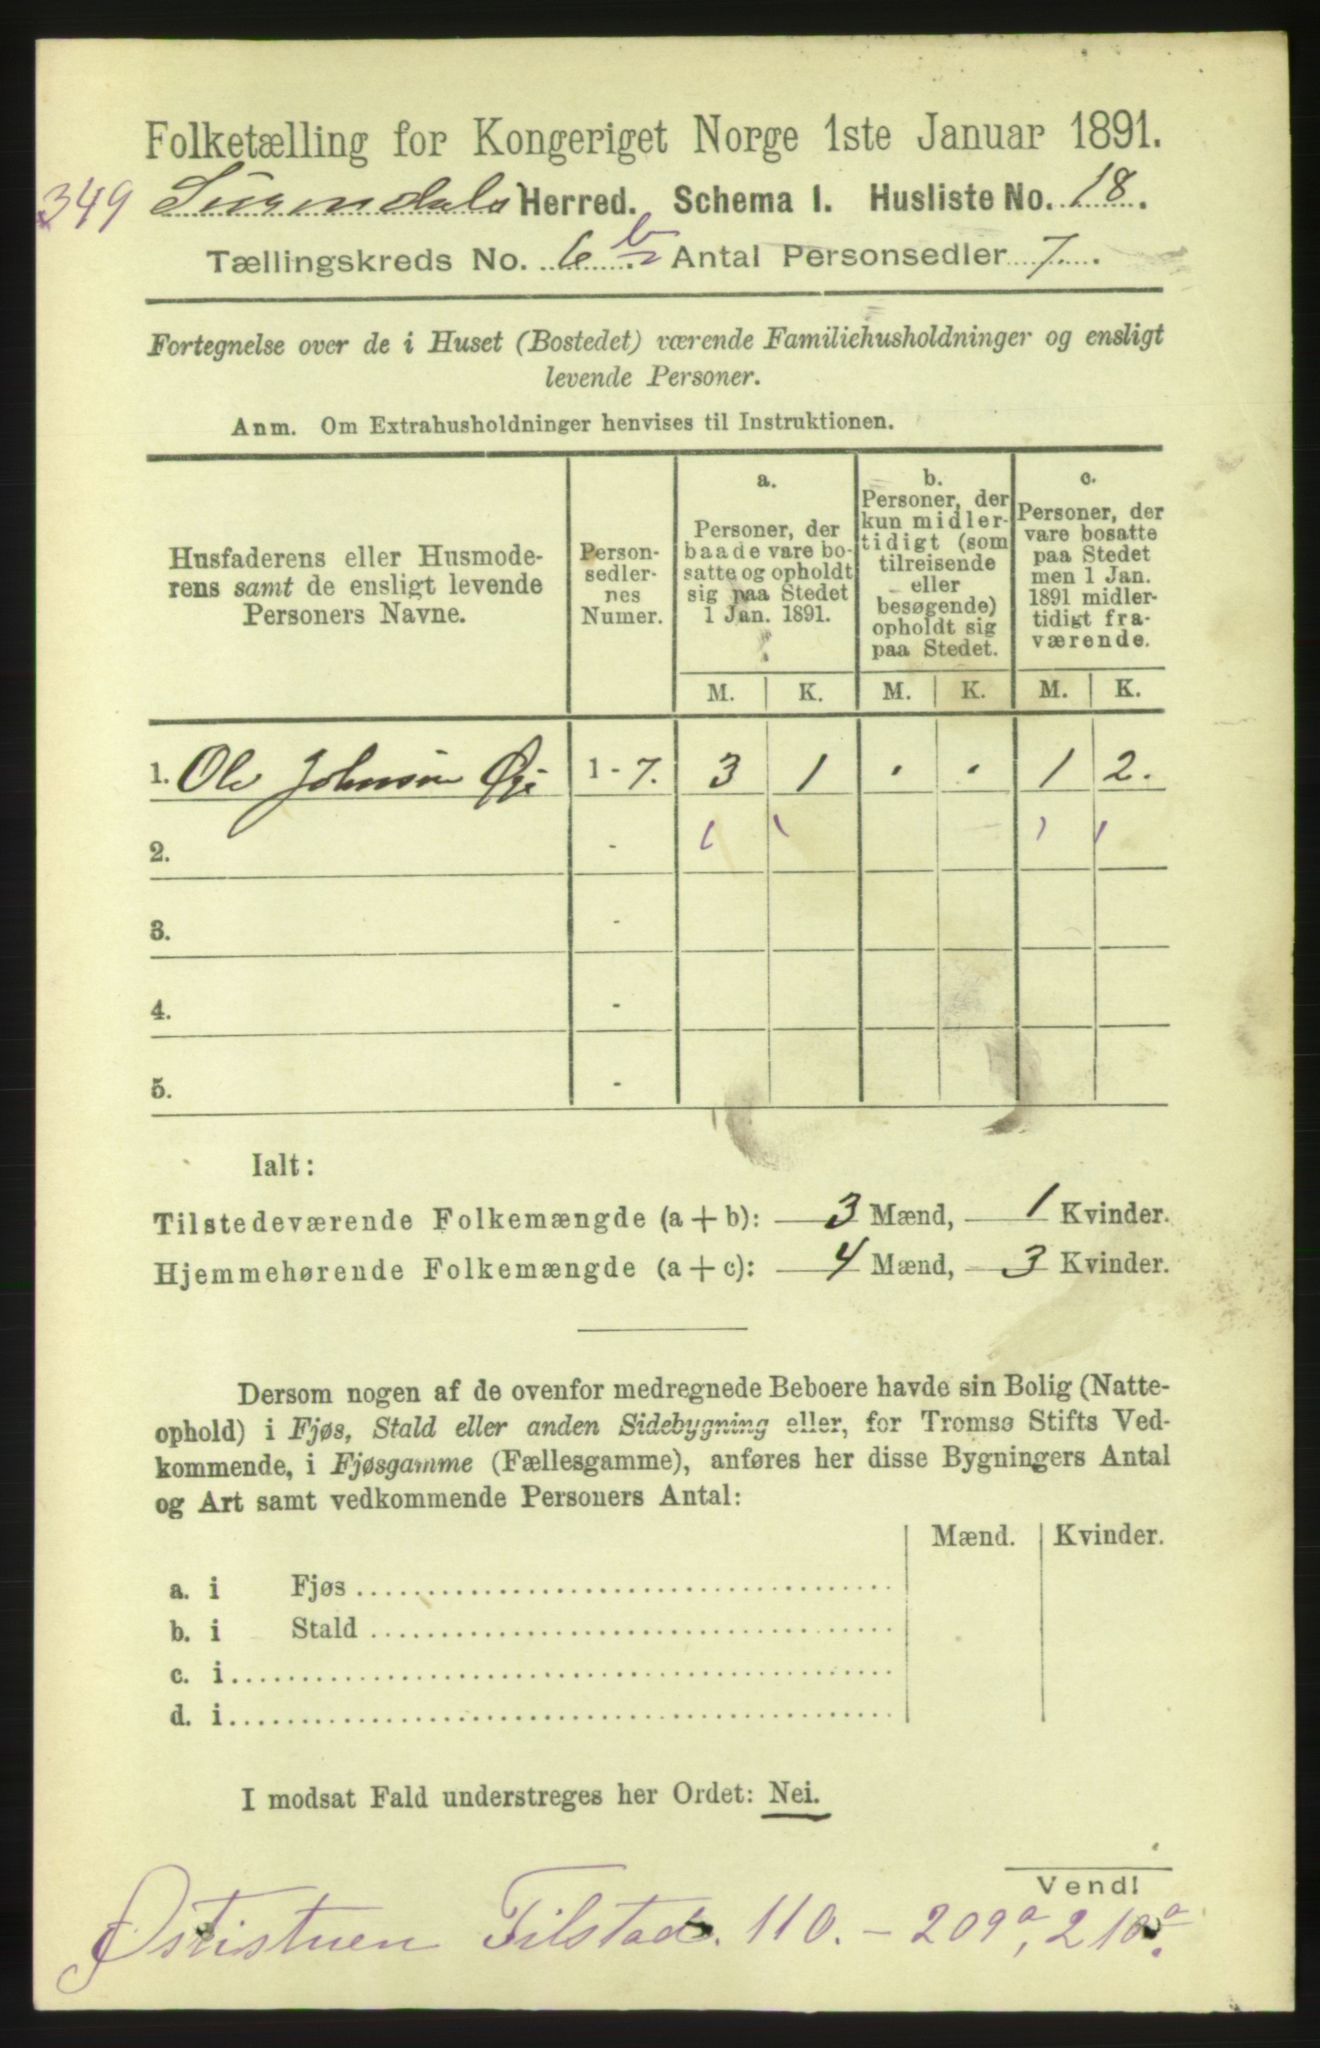 Folketælling for Kongeriget Norge 1ste Januar 1891.
349 Surendals Herred. Schema I. Husliste No. 18.
Tællingskreds No. 6 b. Antal Personsedler 7.
Fortegnelse over de i Huset (Bostedet) værende Familiehusholdninger og ensligt
levende Personer.
Anm. Om Extrahusholdninger henvises til Instruktionen.
Husfaderens eller Husmode-
rens samt de ensligt levende
Personers Navne.
Person-
sedler-
nes
Numer.
a.
Personer, der
baade vare bo-
satte og opholdt
sig paa Stedet
1 Jan. 1891.
b.
Personer, der
kun midler-
tidigt (som
tilreisende
eller
besøgende)
opholdt sig
paa Stedet.
c.
Personer, der
vare bosatte
paa Stedet
men 1 Jan.
1891 midler-
tidigt fra-
værende.
M. K. M. K. M. K.
1. Ole Johnsen Øye 1 - 7. 3 1 . . 1 2.
2. - 1 1 1 1
3. -
4. -
5. -
Ialt:
Tilstedeværende Folkemængde (a + b): 3 Mænd, 1 Kvinder.
Hjemmehørende Folkemængde (a + c): 4 Mænd, 3 Kvinder.
Dersom nogen af de ovenfor medregnede Beboere havde sin Bolig (Natte-
ophold) i Fjøs, Stald eller anden Sidebygning eller, for Tromsø Stifts Ved-
kommende, i Fjøsgamme (Fællesgamme), anføres her disse Bygningers Antal
og Art samt vedkommende Personers Antal:
Mænd. Kvinder.
a. i Fjøs
b. i Stald
c. i
d. i
I modsat Fald understreges her Ordet: Nei.
Vend!
Østistuen Tilstad. 110. - 209a, 210a.